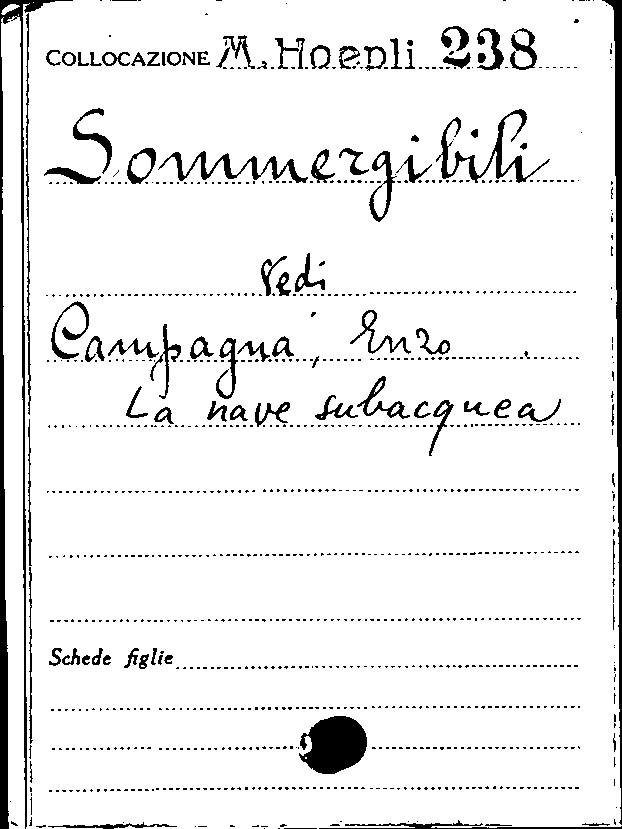 COLLOCAZIONE M. Hoepli 238
Sommergibili
Vedi
Campagna, Enzo
La nave subacquea
Schede figlie